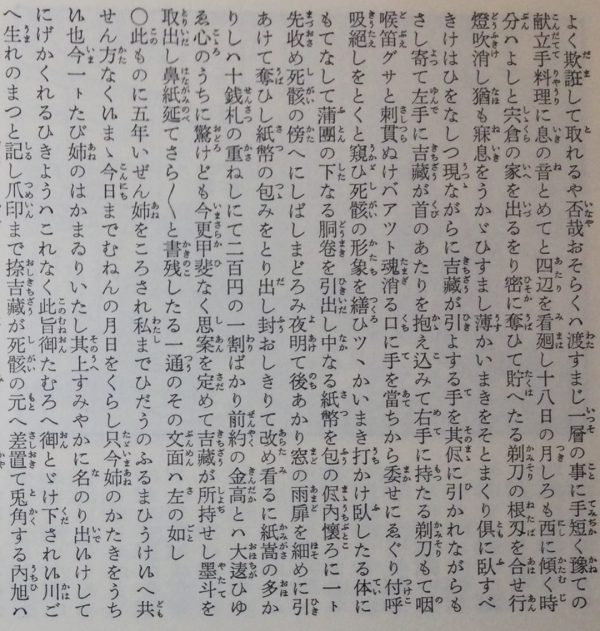 よく欺誑して取れるや否哉おそらくハ渡すまじ一層の事に手短く豫ての
献立手料理に息の音とめてと四辺を看廻し十八日の月しろも西に傾く時
分ハよしと宍倉の家を出るをり密に奪ひて貯へたる剃刀の根刃を合せ行
燈吹消し猶も寐息をうかゞひすまし薄かいまきをそとまくり俱に臥すべ
きけはひをなしつ現ながらに吉蔵が引よする手を其侭に引かれながらも
さし寄て左手に吉蔵が首のあたりを抱え込みて右手に持たる剃刀もて咽
喉笛グサと刺貫ぬけバアツト魂消る口に手を当ちから委せにゑぐり付呼
吸絶しをとくと窺ひ死骸の形象を繕ひツヽかいまき打かけ臥したる体に
もてなして蒲團の下なる胴巻を引出し中なる紙幣を包の侭内懐ろに一ト
先收め死骸の傍へにしばしまどろみ夜明て後あかり窓の雨扉を細めに引
あけて奪ひし紙幣の包みをとり出し封おしきりて改め看るに紙嵩の多か
りしハ十銭札の重ねしにて二百円の一割ばかり前約の金高とハ大逺ひゆ
ゑ心のうちに驚けども今更甲斐なく思案を定めて吉蔵が所持せし墨斗を
取出し鼻紙延てさら〳〵と書残したる一通のその文面ハ左の如し
〇此ものに五年いぜん姉をころされ私までひだうのふるまひうけいへ共
せん方なくいまゝ今日までむねんの月日をくらし只今姉のかたきをうち
い也今一トたび姉のはかまゐりいたし其上すみやかに名のり出いけして
にげかくれるひきようハこれなく此旨御たむろへ御とゞけ下されい川ご
へ生れのまつと記し爪印まで捺吉蔵が死骸の元へ差置て兎角する内旭ハ